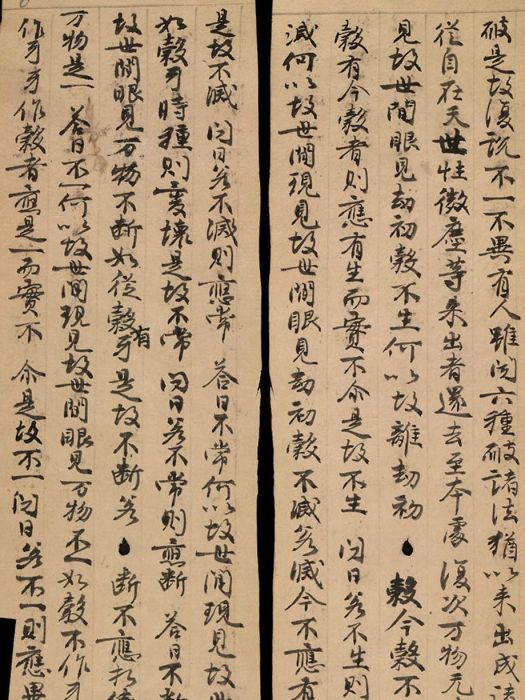 破是故復說不一不異有人雖聞六種破諸法猶以来出成
從自在天世性微塵等来出者還去至本處 復次万物无
見故世間眼見劫初穀不生何以故離劫初 穀今穀不
穀有今穀者則應有生而實不尒是故不生 問曰若不生則
滅何以故世間現見故世間眼見劫初穀不滅若滅今不應有
是故不滅 問曰若不滅則應常 答曰不常何以故世間現見故世
如穀牙時種則變壞是故不常 問曰若不常則應斷 答曰不斷
故世間眼見万物不斷如從穀有牙是故不斷若 斷不應相
万物是一 答曰不一何以故世間現見故世間眼見万物不一如穀不作牙
作牙牙作穀者應是一而實不 尒是故不一問曰若不一則應異